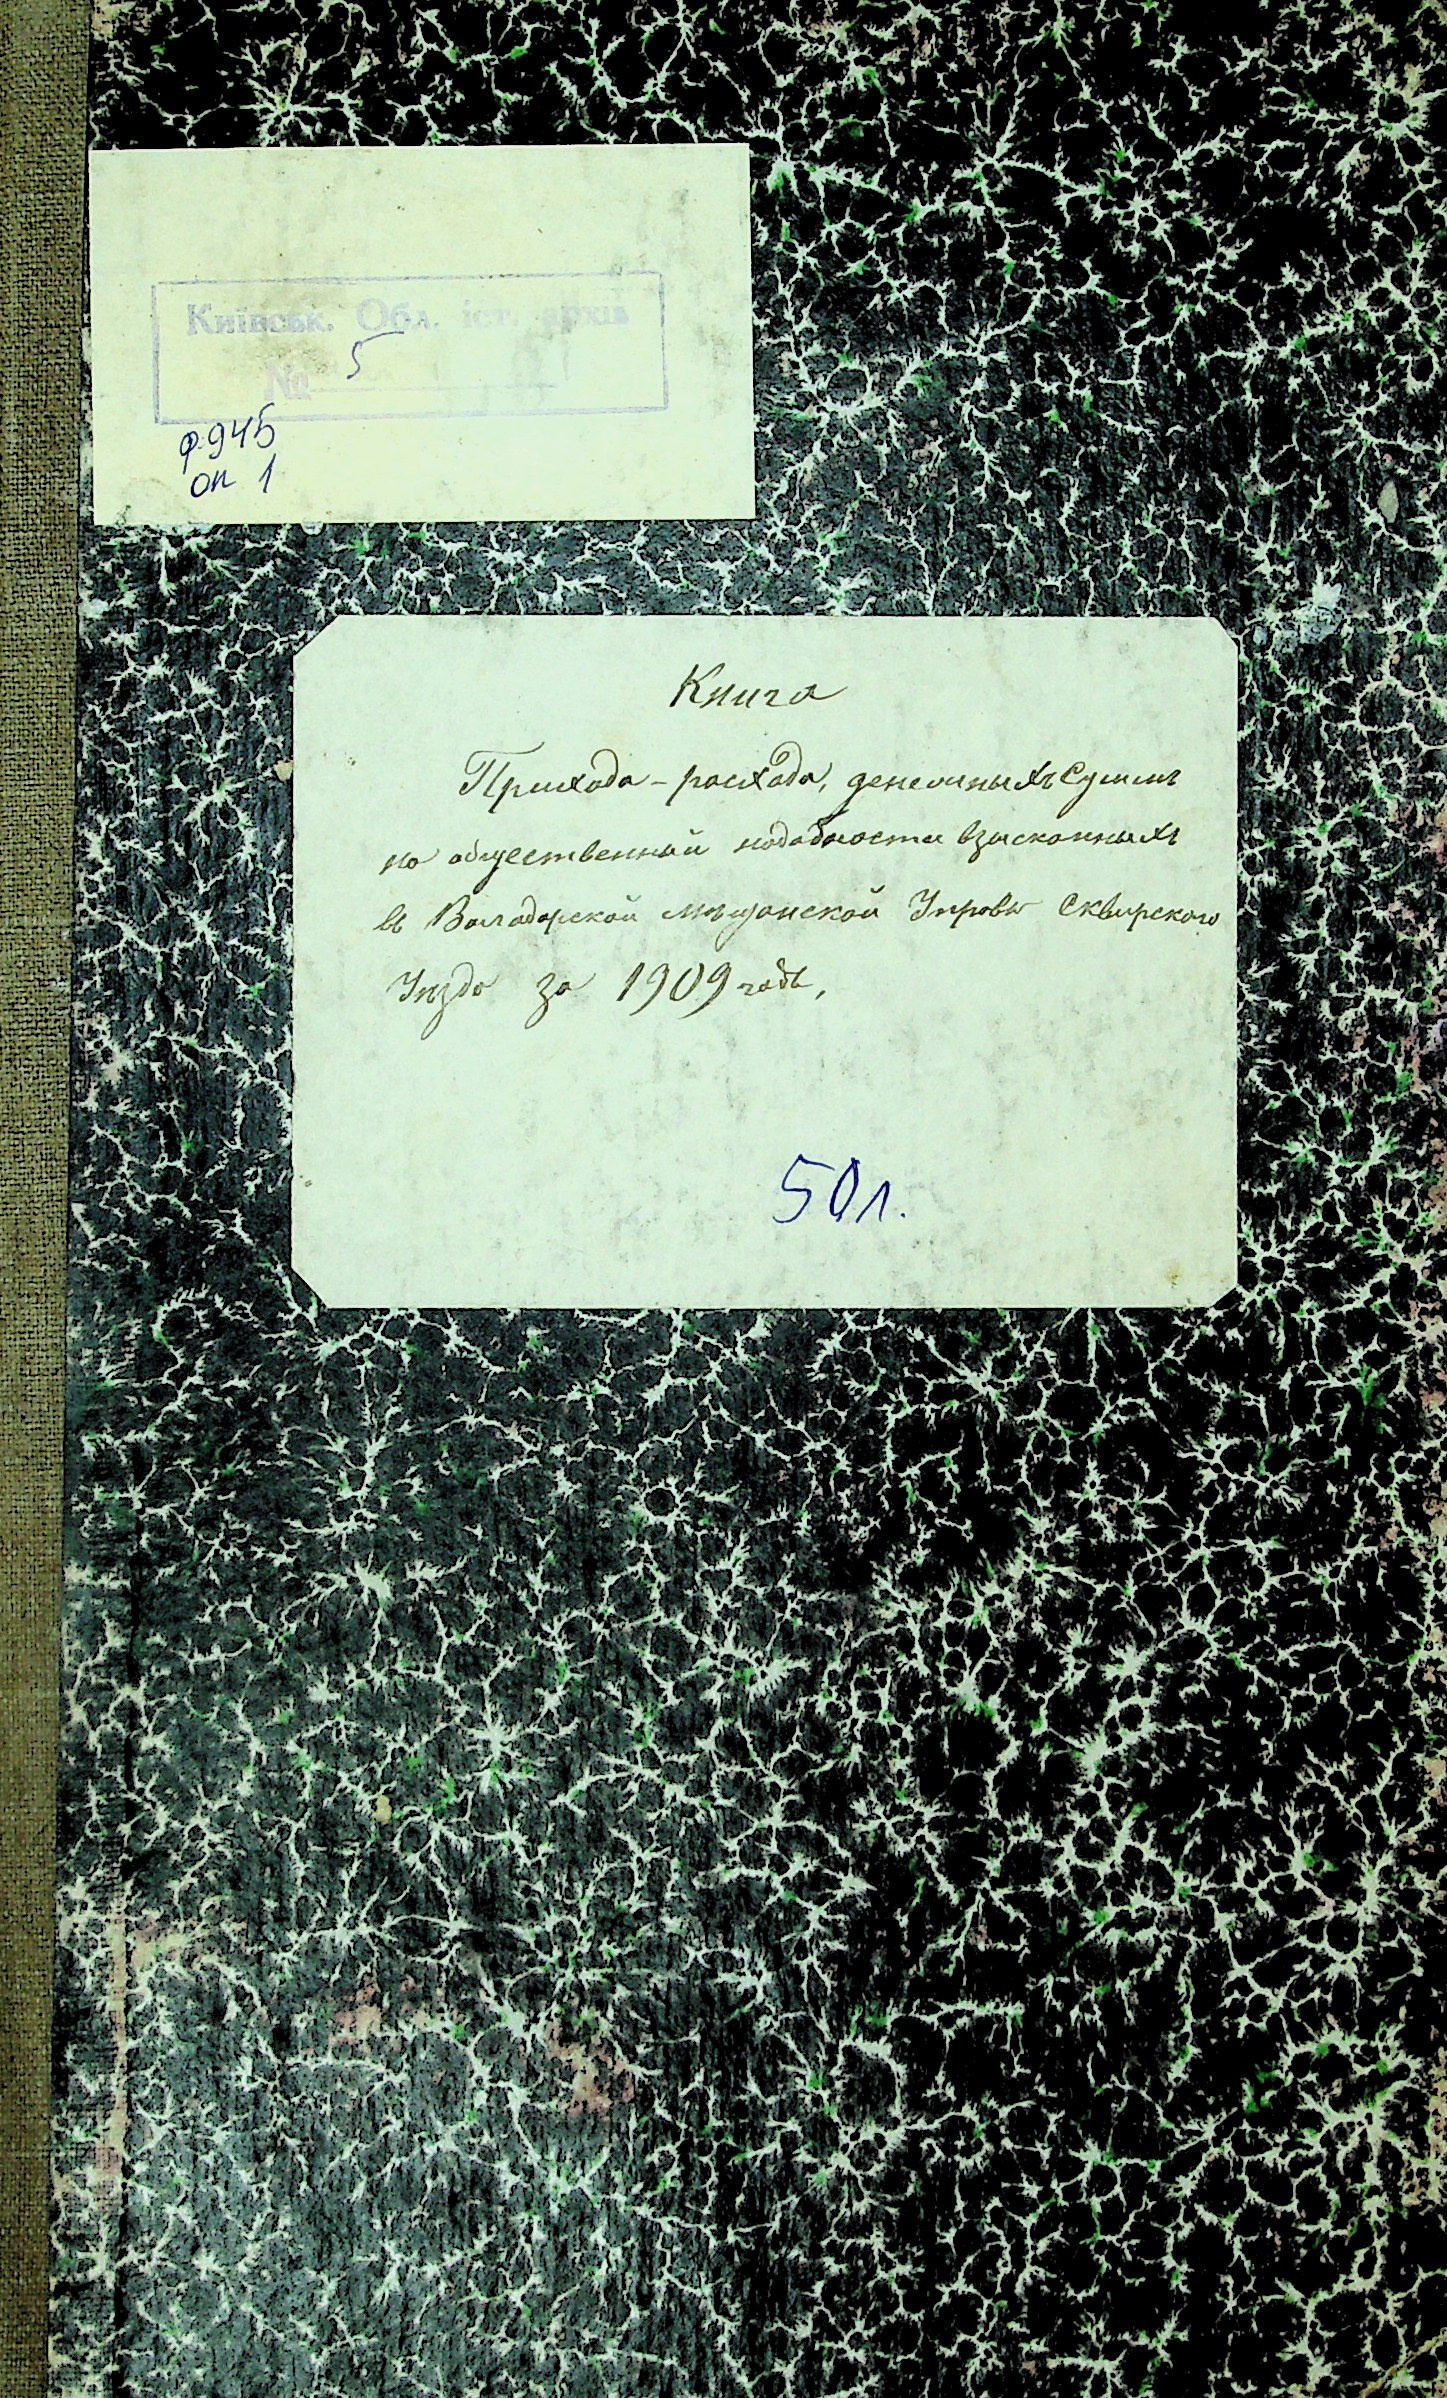 Київськ. Обл. іст. архів
№ 5
ф. 945
оп 1
Книга
Прихода-расхода, денежныхъ Суммъ
по общественной надобности взысканныхъ
въ Володарской мѣщанской Управы Сквирскаго
Уѣзда за 1909 годъ,
50 л.